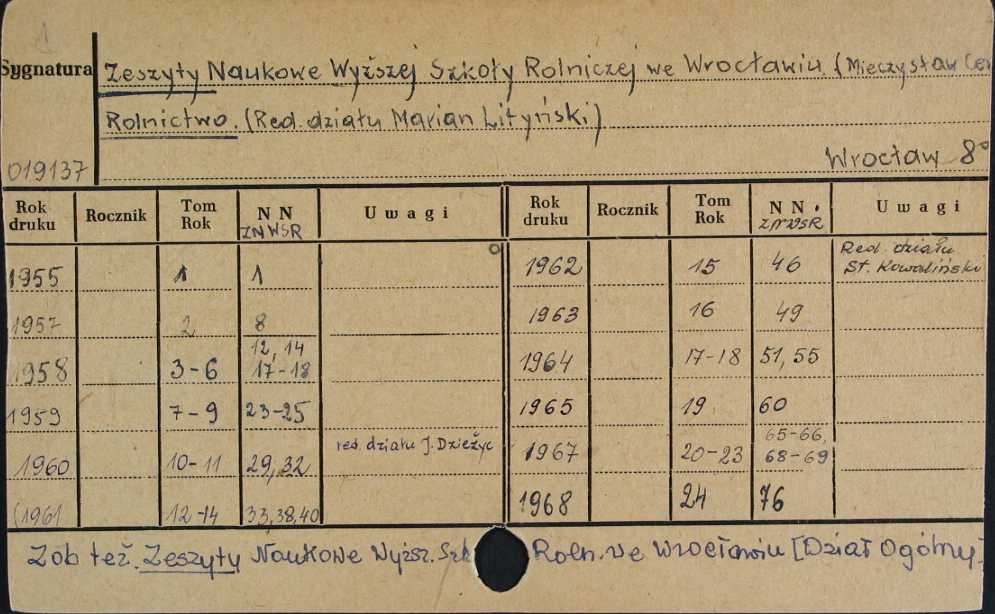 Sygnatura
Zeszyty Naukowe Wyższej Szkoły Rolniczej we Wrocławiu. (Mieczysław
Rolnictwo. (Red. działu Marian Lityński)
019137
Wrocław 8°
Rok druku Rocznik Tom Rok N N ZNWSR Uwagi Rok druku Rocznik Tom Rok N N. ZNWSR Uwagi
1955 1 1 1962 15 46 Red. działu St. Kowaliński
1957 2 8 1963 16 49
1958 3-6 12, 14 17-18 1964 17-18 51, 55
1959 7-9 23-25 1965 19 60
1960 10-11 29, 32 red. działu J. Dzieżyc 1967 20-23 65-66, 68-69
(1961 12-14 33,38,40 1968 24 76
Zob też. Zeszyty Naukowe Wyższ. Szk Roln. we Wrocławiu [Dział Ogólny]